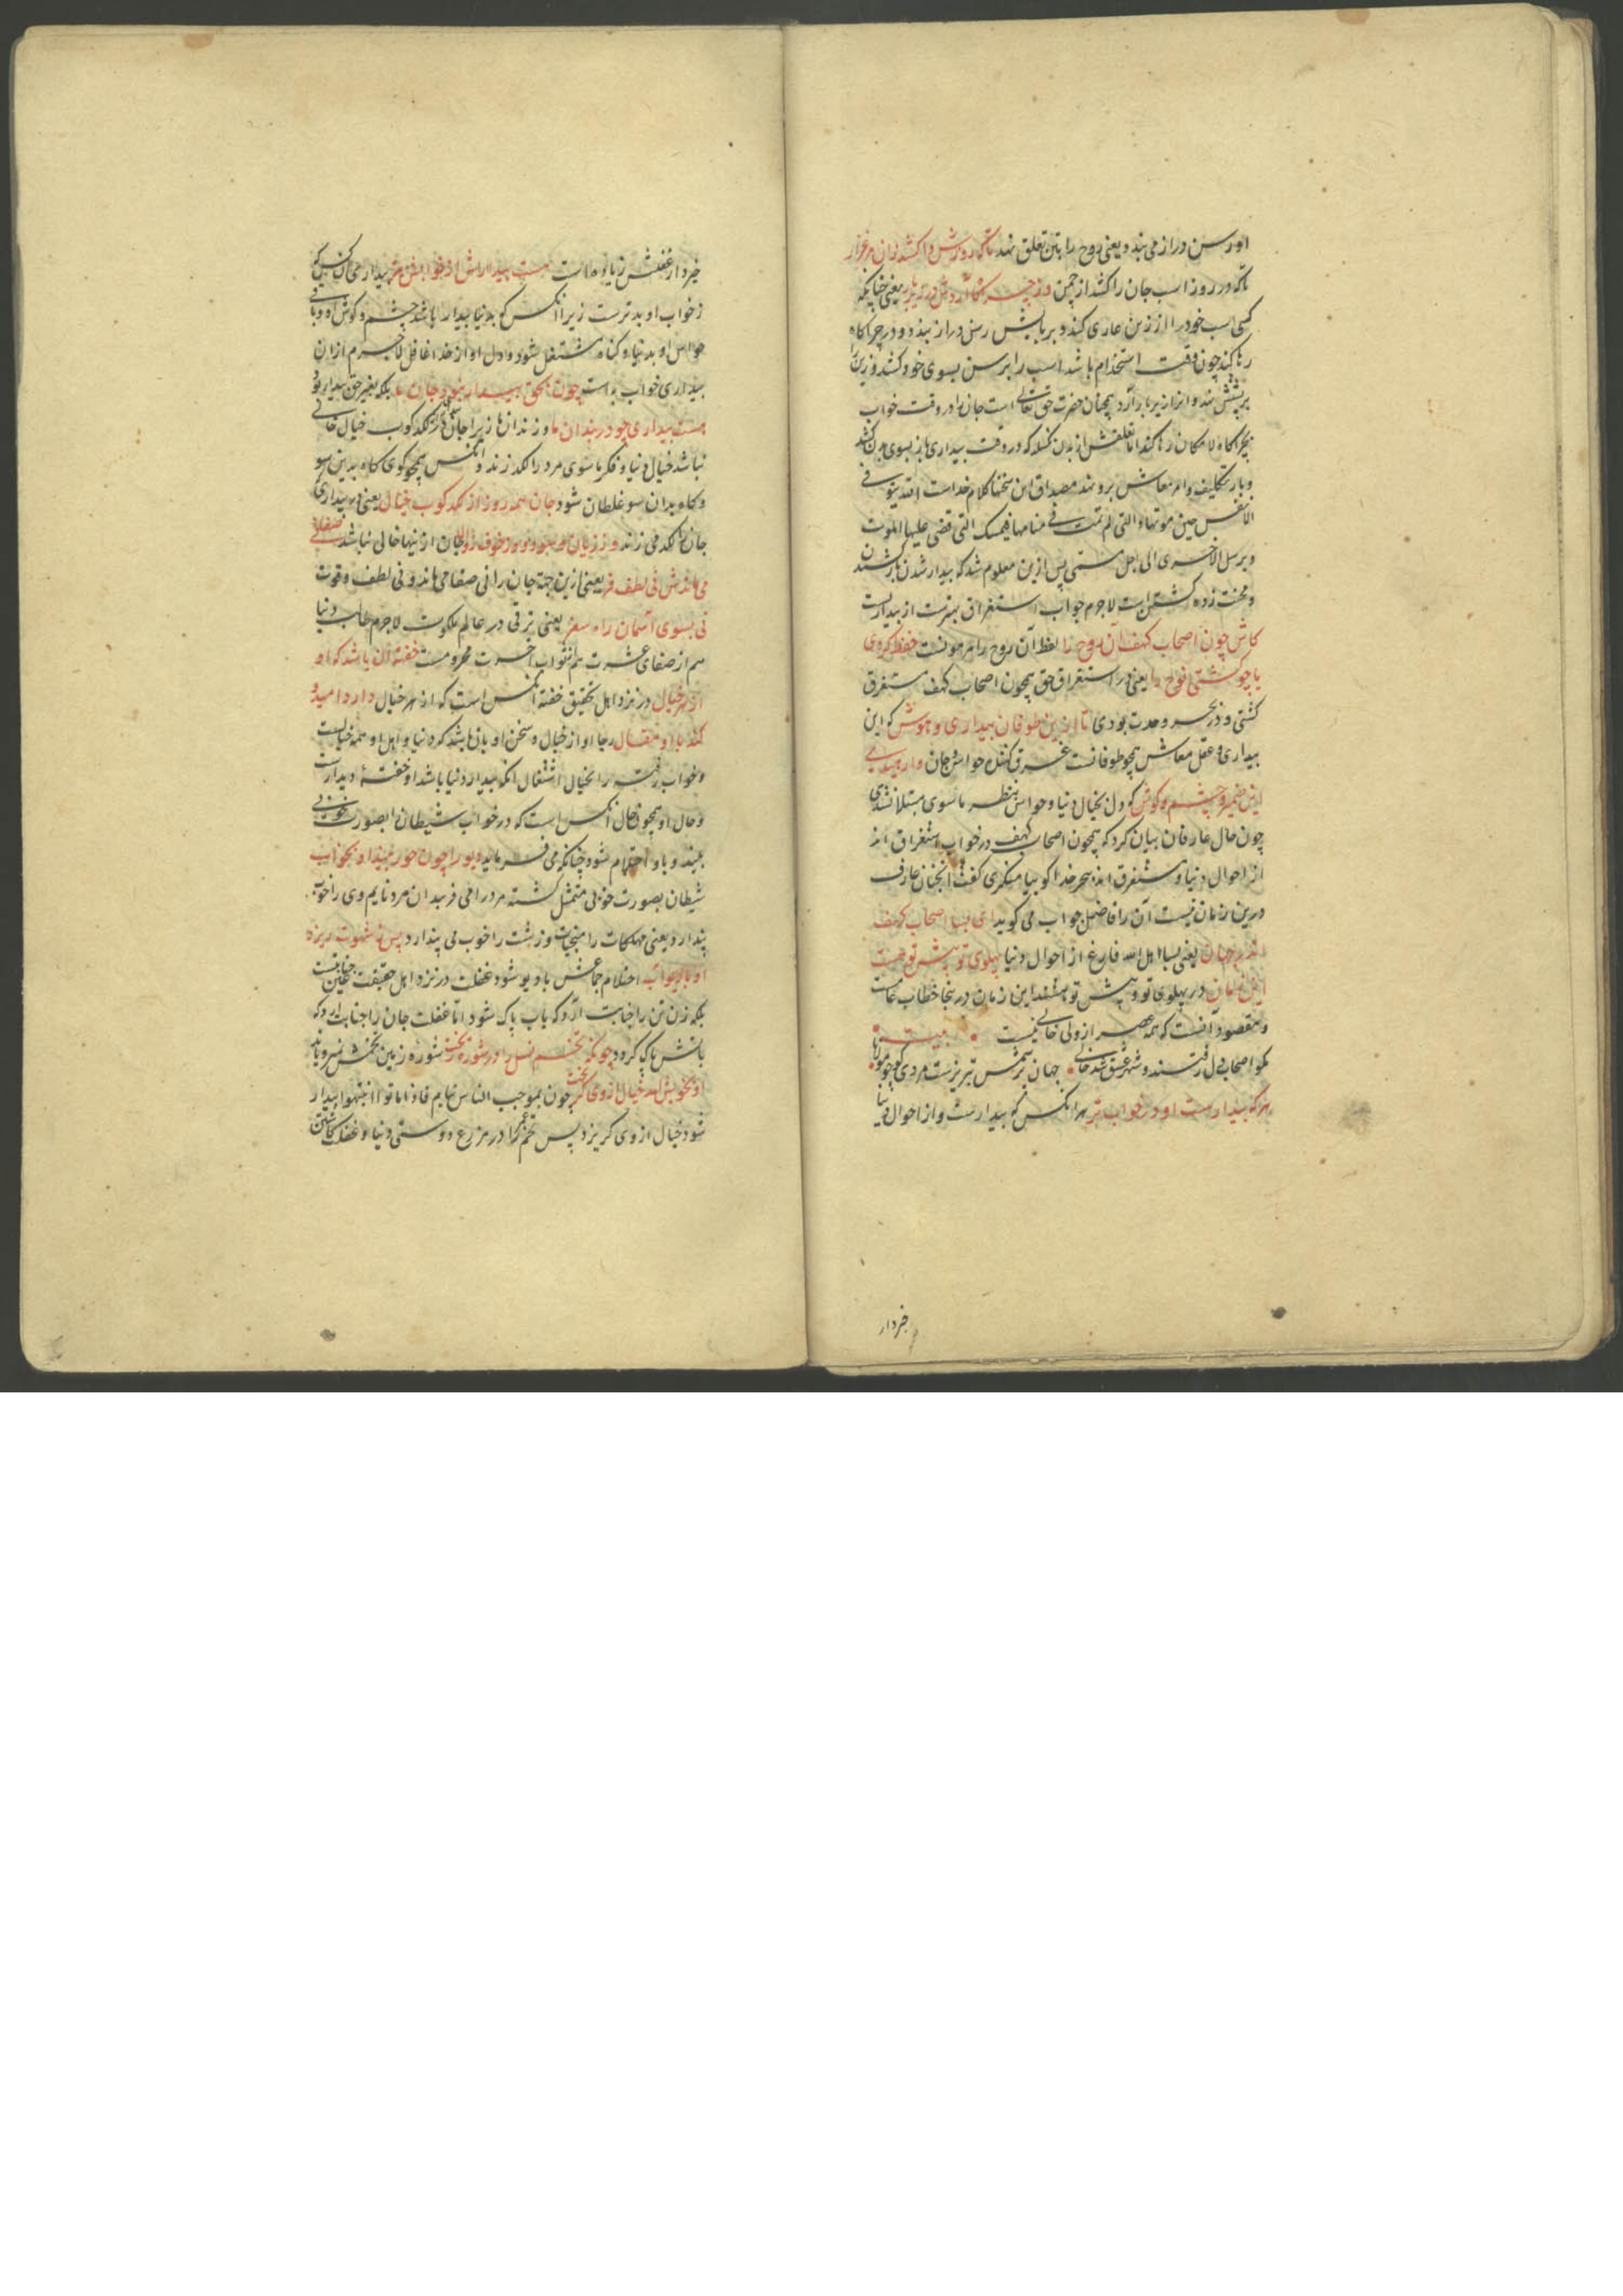 او رسن دراز می بندد یعنی روح را بتن تعلق نهد تا که روزش واکشد زان مرغزار
تا که در روز اسب جان را کشد از چمن وز چراگاه آردش در زیر بار یعنی چنانکه
کسی اسب خود را از زین عاری کند و بر پایش رسن دراز بندد و در چراگاه
رها کند چون وقت استخدام باشد اسب را برسن بسوی خود کشد و زین را
بر پشتش نهد و انرا زیر بار آرد همچنان حضرت حق تعالی است جان را در وقت خواب
بچراگاه لامکان رها کند اما تعلقش از بدن نکسلد که در وقت بیداری باز بسوی بدن کشد
و بار تکالیف و امر معاش برو نهد مصداق این سخنها کلام خداست الله یتوفی
الانفس حین موتها والتی لم تمت فی منامها فیمسک التی قضی علیها الموت
و یرسل الاخری الی اجل مسمی پس ازین معلوم شد که بیدار شدن بار کشیدن
و محنت زده کشتن است لاجرم خواب استغراق بهترست از بیداریست
کاش چون اصحاب کهف آن روح را لفظ آن روح را مرهونست حفظ کردی
یا چو کشتی نوح را یعنی در استغراق حق همچون اصحاب کهف مستغرق
کشتی و در بحر وحدت بودی تا ازین طوفان بیداری و هوش که این
بیداری و عقل معاش همچو طوفانست غرق کننده حواس و جان وارهیدی
این ضمیر و چشم و کوش که دل بخیال دنیا و حواس بنظر ماسوی مبتلا نشدی
چون حال عارفان بیان کرد که همچون اصحاب کهف در خواب استغراق اند
از احوال دنیا و مستغرق اند ببحر خدا کویا منکری کفت انچنان عارف
درین زمان نیست آن را فاضل جواب می کوید ای بسا اصحاب کهف
اندر جهان یعنی بسا اهل الله فارغ از احوال دنیا پهلوی تو پیش تو هست
این زمان در پهلوی تو و پیش تو هستند این زمان درینجا خطاب عامست
و مقصود آنست که همه عصر از ولی خالی نیست بیت
مکو اصحاب دل رفتند و شهر عشق شد خالی جهان پر شمس تبریزست مردی کو چو مولانا
هر که بیدارست او در خواب تر هر انکس که بیدارست و از احوال دنیا
خبردار
خبردار غفلتش زیاده است هست بیداریش از خوابش بتر بیداری آن کس که
ز خواب او بدترست زیرا انکس که بدنیا بیدار باشد چشم و کوش او و باقی
حواس او بدنیا و کناه مشتغل شود و دل او از خدا غافل لاجرم از ان
بیداری خواب به است چون بحق بیدار نبود جان ما بلکه بغیر حق بیدار بود
هست بیداری چو در بندان ما و زندان ما زیرا جان از لکدکوب خیال خالی
نباشد خیال دنیا و فکر ماسوی مرد را لکد زند و انکس همچو کوی کاه بدین سو
و کاه بدان سو غلطان شود جان همه روز از لکدکوب خیال یعنی در بیداری
جان لکد می زند وز زیان و سود و وز خوف زوال جان از اینها خالی نباشد نی صفا
می ماندش نی لطف و فر یعنی ازین جهة جان را نی صفا می ماند و نی لطف و قوت
نی بسوی آسمان راه سفر یعنی ترقی در عالم ملکوت لاجرم طالب دنیا
هم از صفای عشرت هم از ثواب آخرت محرومست خفته آن باشد که او
از هر خیال در نزد اهل تحقیق خفته آنکس است که از هر خیال دارد امید و
کند با او مقال رجا او از خیال و سخن او با ان باشد که دنیا و اهل او همه خیالست
و خواب رفته را بخیال اشتغال انکه بیدار دنیا باشد او خفته دیدارست
و حال او همچو حال انکس است که در خواب شیطان را بصورت خوبی
بیند و با او احتلام شود چنانکه می فرماید دیو را چون حور بیند او بخواب
شیطان بصورت خوبی متمثل کشته مرد را می فریبد ان مرد نایم وی را خوب
پندارد یعنی مهلکات را منجیات و زشت را خوب می پندارد پس ز شهوت ریزد
او با دیو آب احتلام جماعش با دیو شود غفلت در نزد اهل حقیقت عین جنابتست
بلکه زن تن را جنابت آرد که باب پاک شود اما غفلت جان را جنابت آرد که
باتش پاک کردد چونکه تخم نسل را در شوره ریخت شوره زمین تخمش نرویاند
او بخویش آمد خیال از وی کریخت چون بموجب الناس نیام فاذا ماتوا انتبهوا بیدار
شود خیال از وی کریزد پس تخم عمر را در مزرع دوستی دنیا و غفلت کاشتن